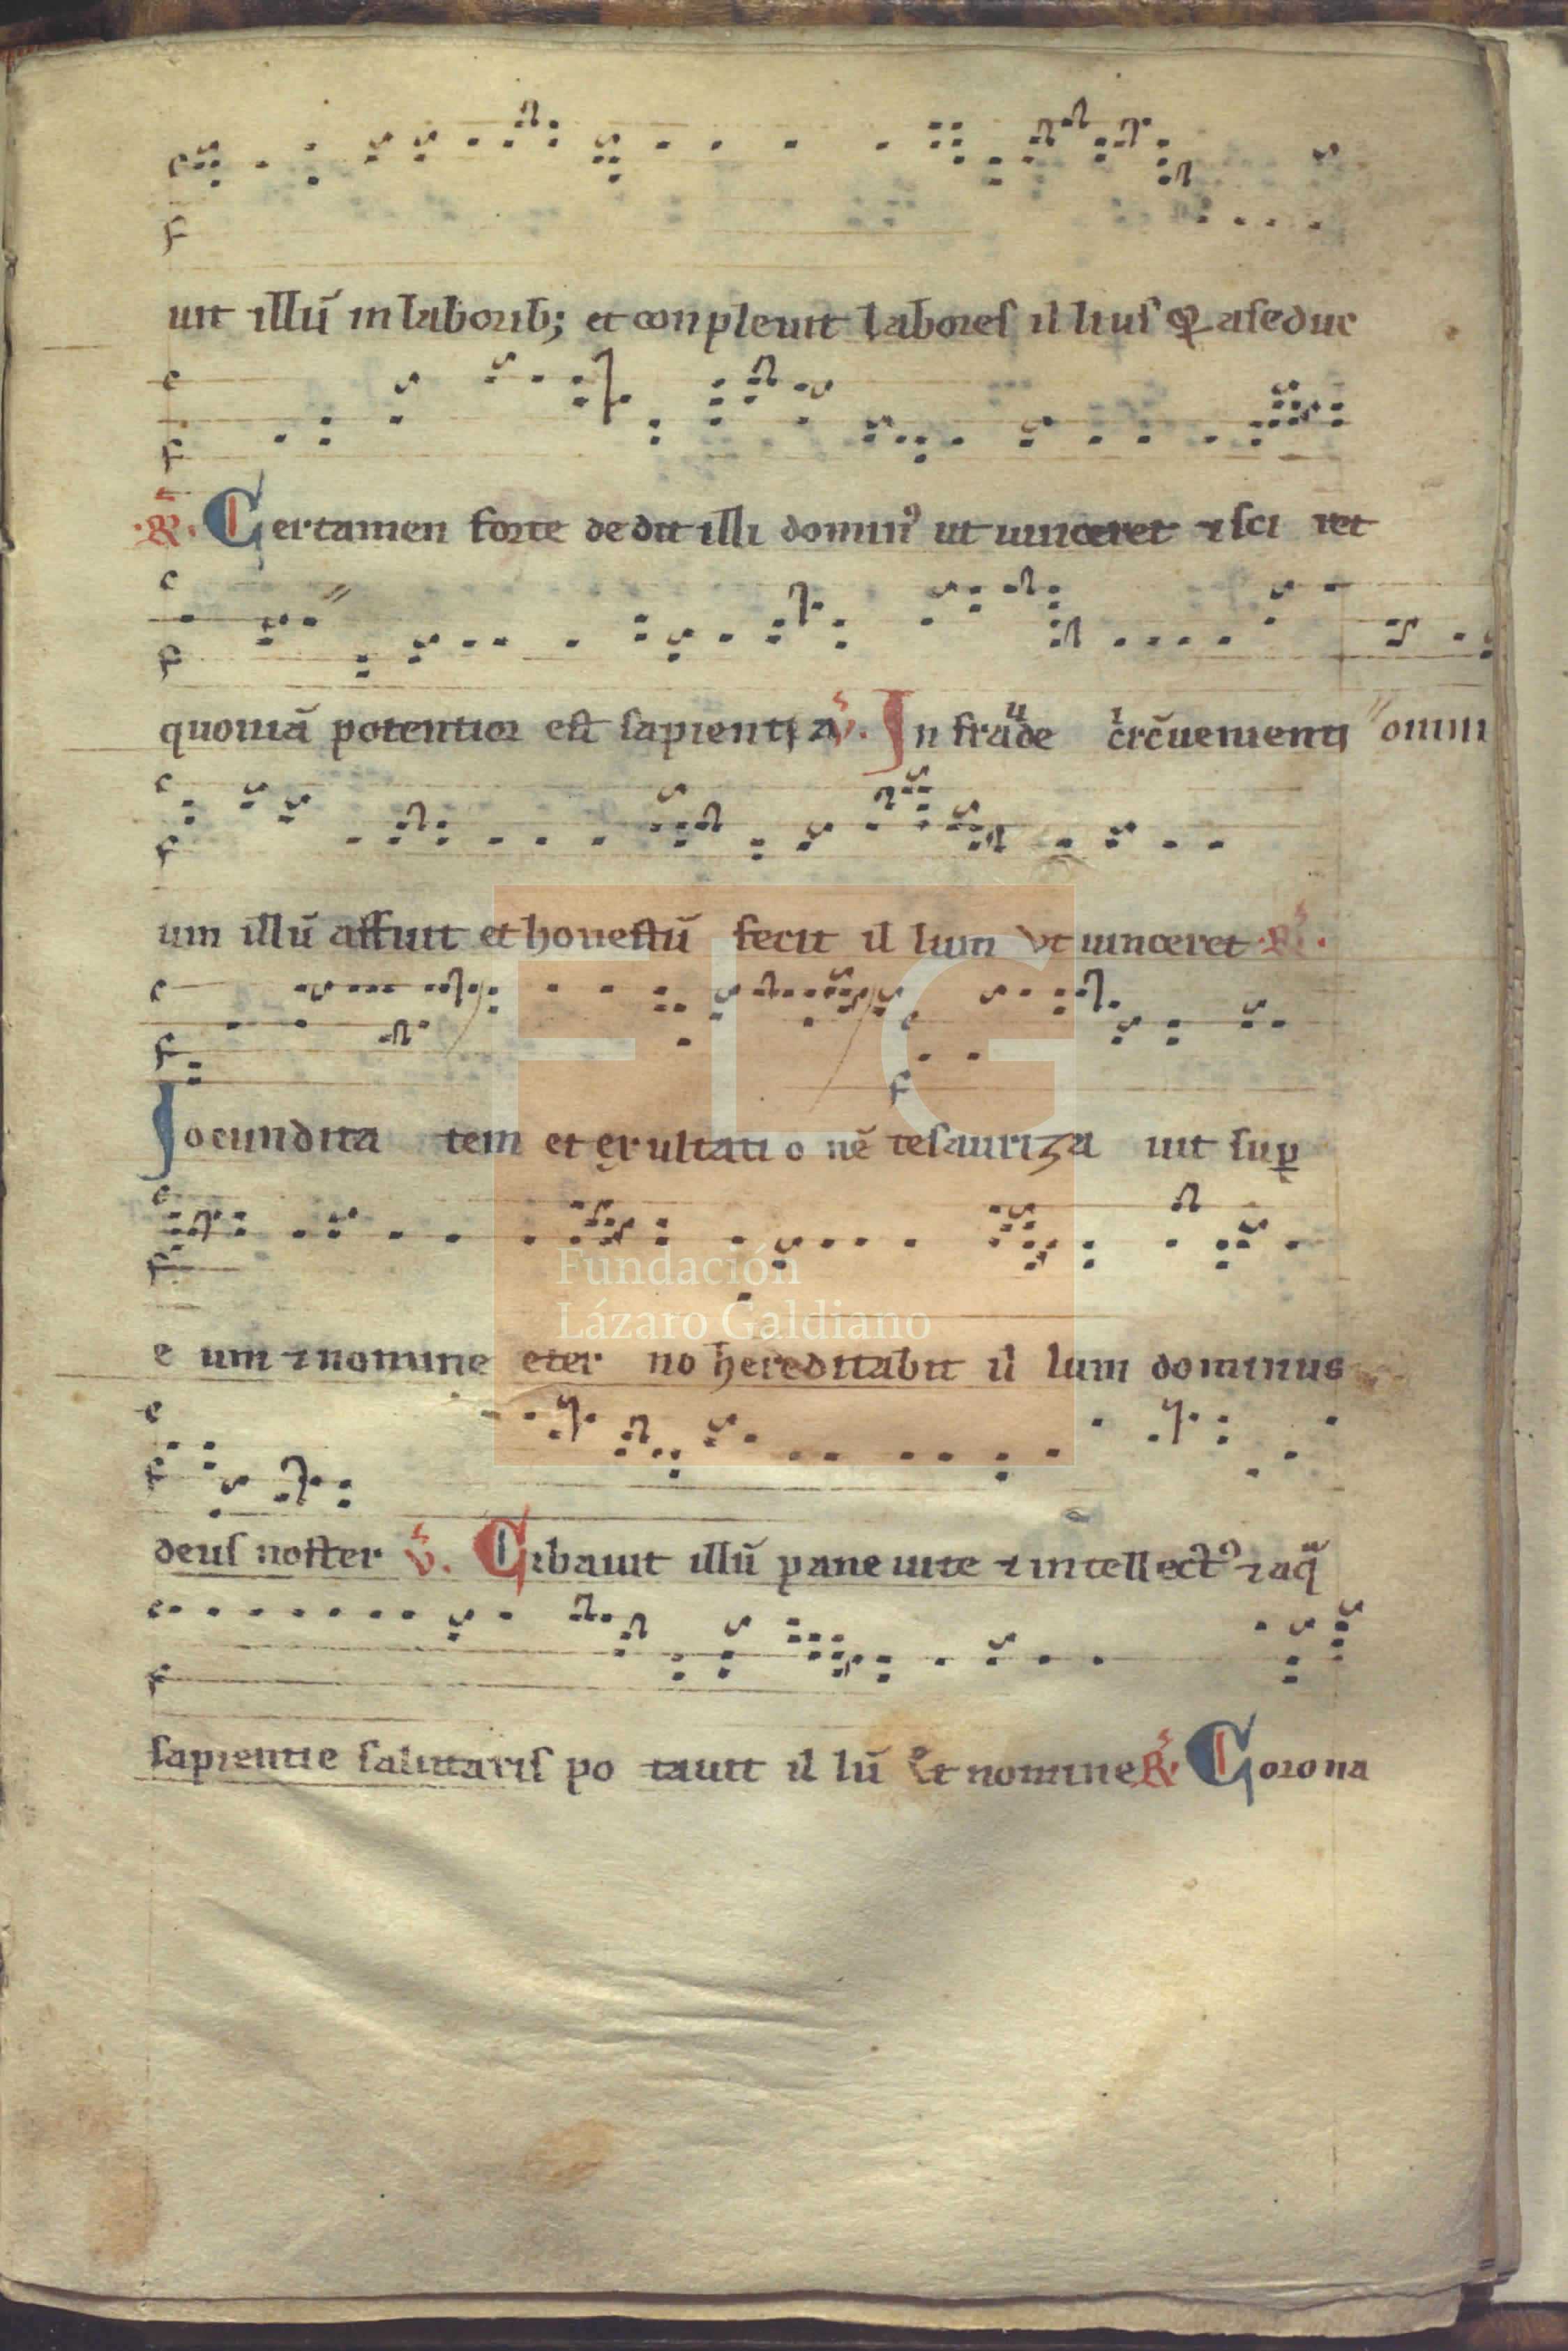 uit illũ in laborib; et conpleuit labores il lius Q̶ aseduc
R̃. Certamen forte dedit illi domin⁹ ut uinceret ⁊ sci ret
quoniã potentior est sapienti a ṽ. In fraude circ̃uenienti " omni
um illũ affuit et honestũ fecit il lum Vt uinceret R̃.
Jocundita tem et exultati o nẽ tesauriza uit suꝑ
e um ⁊ nomine eter no hereditabit il lum dominus
deus noster ṽ. Cibauit illũ pane uite ⁊ intellect⁹ ⁊ aq̃
sapientie salutaris po tauit il lũ Et nomine R̃ Corona
Fundación
Lázaro Galdiano